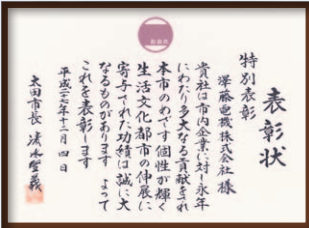 表彰状
特別表彰
澤藤電機株式会社 様
貴社は市内企業に対し永年
にわたり多大なる貢献をされ
本市のめざす個性が輝く
生活文化都市の伸展に
寄与された功績は誠に大
なるものがあります よって
これを表彰します
平成二十七年十二月四日
太田市長 清水聖義